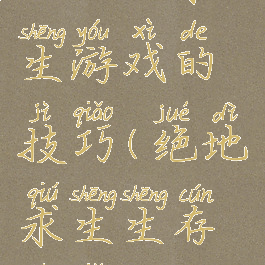 shēng yóu xì de
生游戏的
jì qiǎo jué dì
技巧(绝地
qiú shēng shēng cún
求生生存